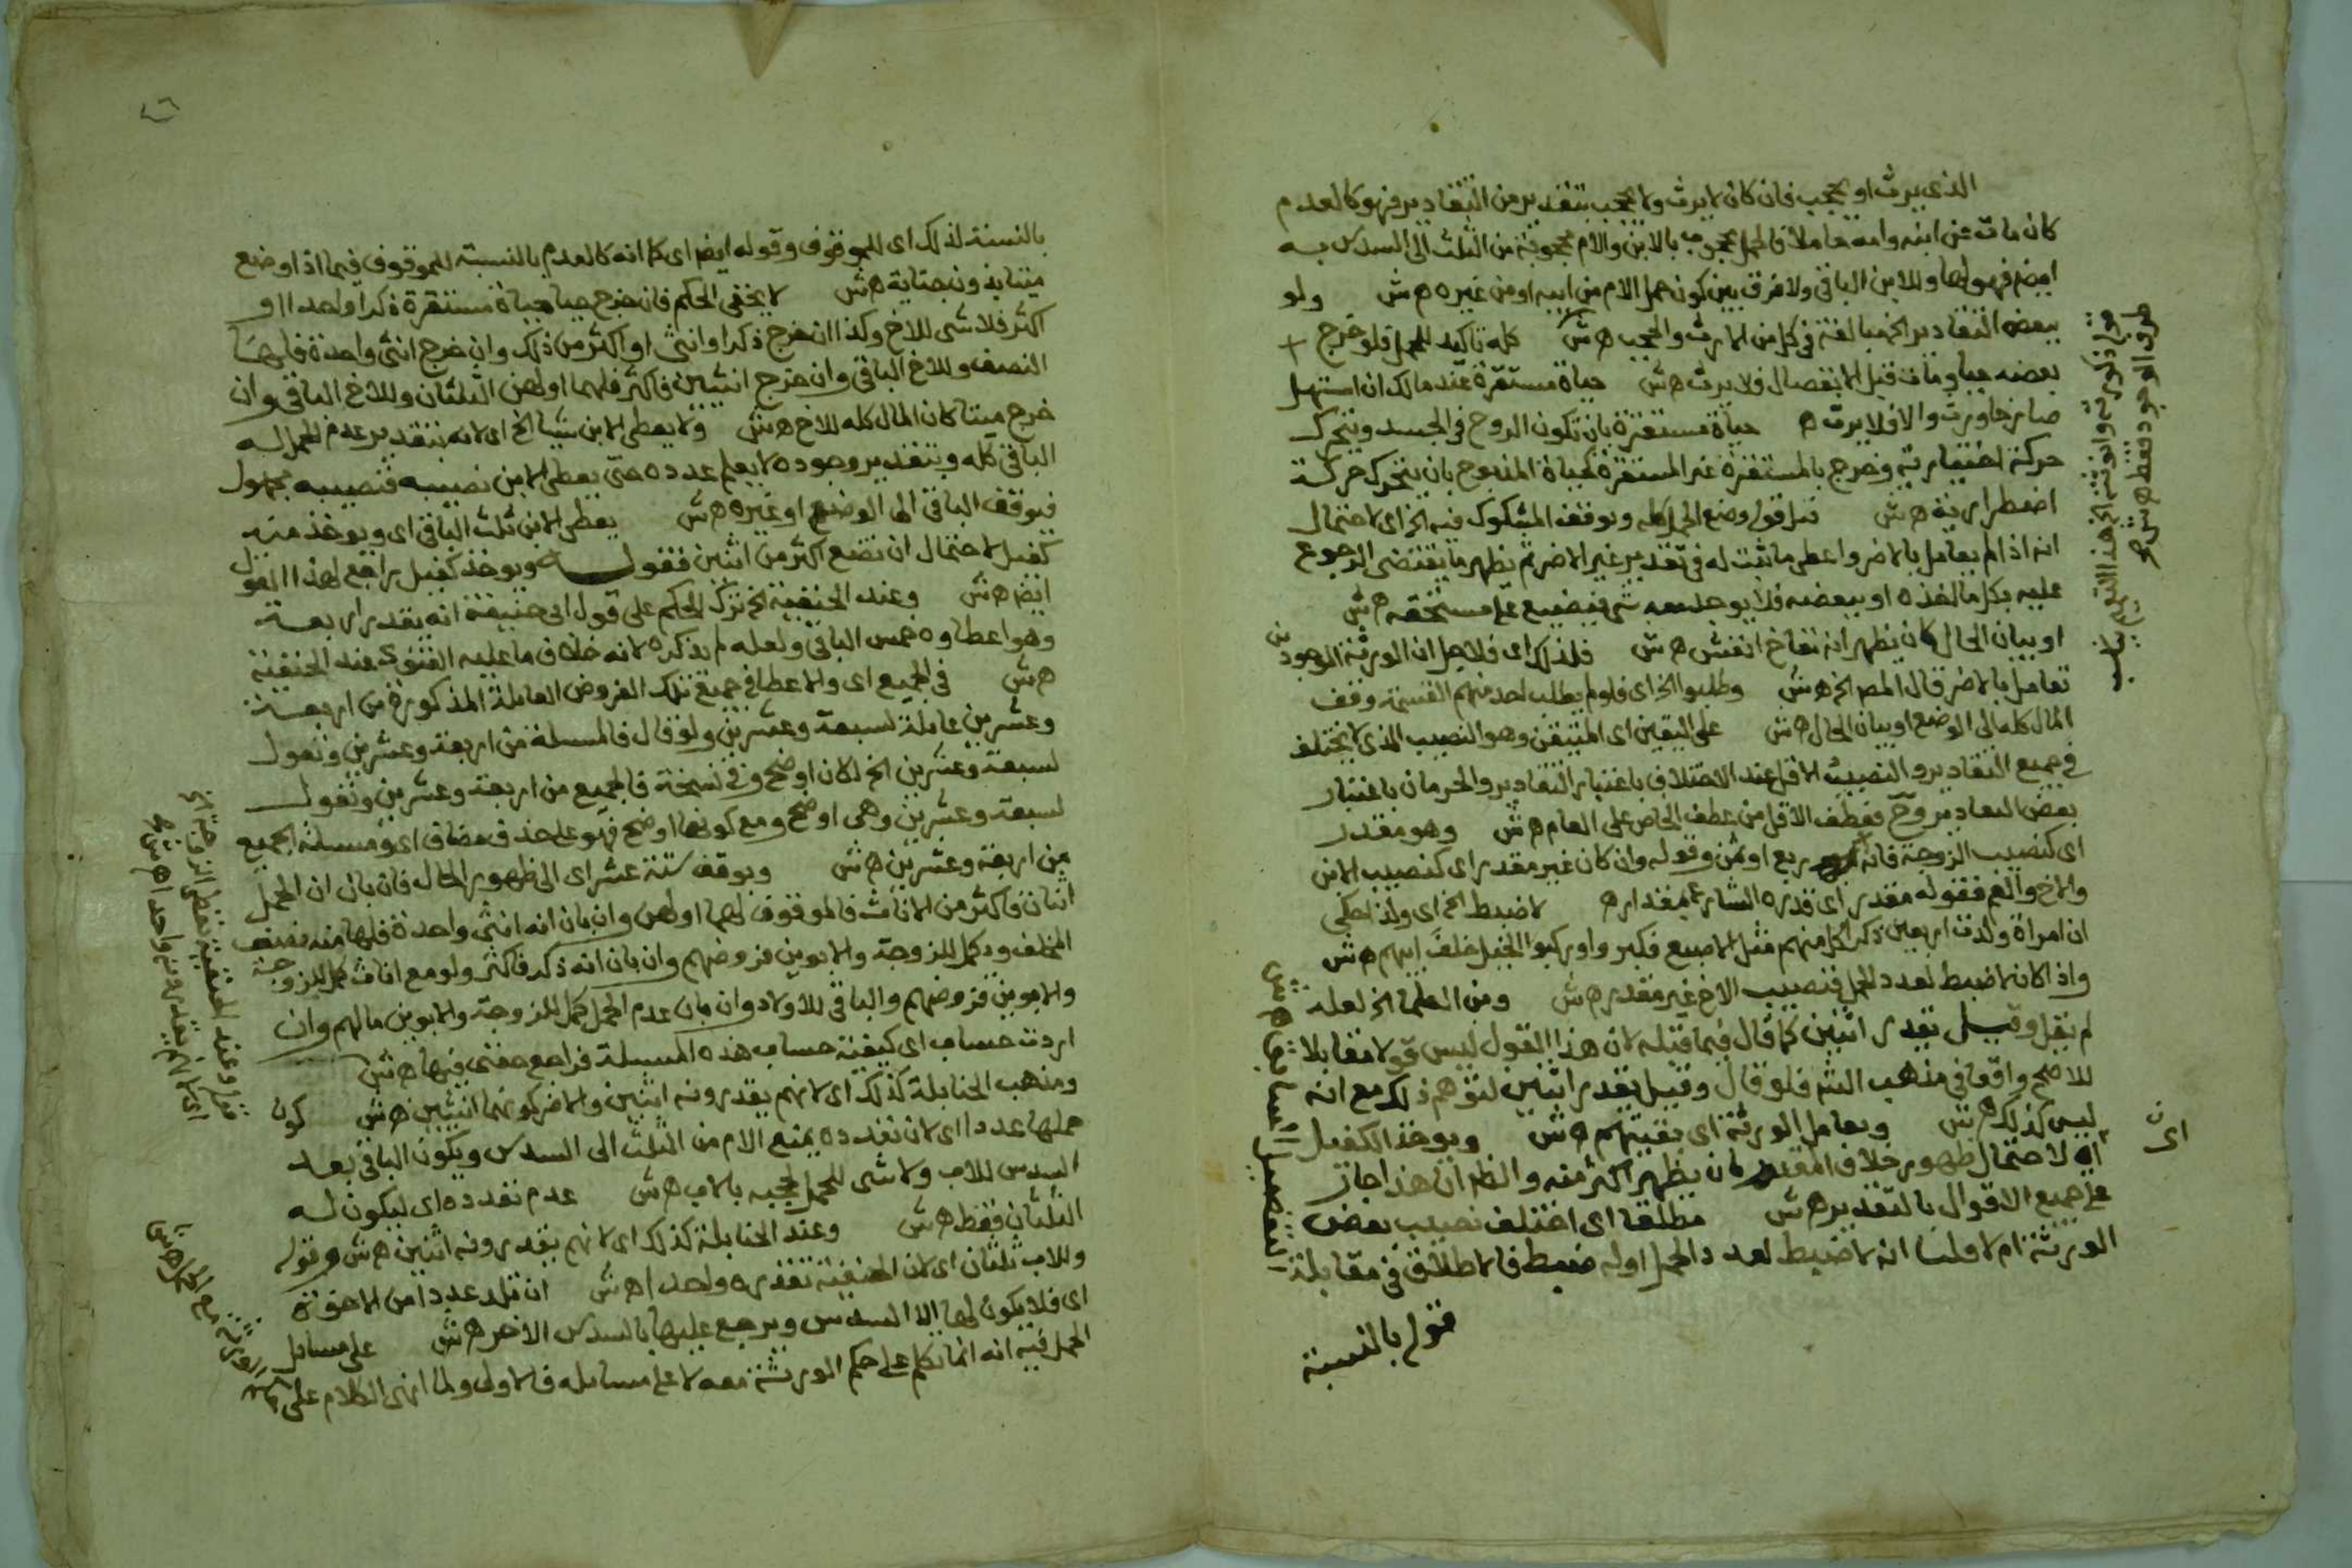 الذى يرث او يحجب فان كان لا يرث ولا يحجب بتقدير من التقادير فهو كالعدم
كان مات عن ابنه وامه حاملا فالحمل محجوب بالابن والام محجوبة من الثلث الى السدس به
ايضا فهو لها وللابن الباقى ولا فرق بين كون حمل الام من ابيه او من غيره ه ش ولو
ببعض التقادير الخ مبالغة فى كل من الارث والحجب ه ش كله تاكيد للحمل فلو خرج
بعضه حيا ومات قبل الانفصال فلا يرث ه ش حياة مستقرة عند مالك ان استهل
صارخا ورث والا فلا يرث ه حياة مستقرة بان تكون الروح فى الجسد ويتحرك
حركة اختيارية وخرج بالمستقرة غير المستقرة كحياة المذبوح بان يتحرك حركة
اضطرارية ه ش قبل قوله وضع الحمل كله ويوقف المشكوك فيه الخ اى لاحتمال
انه اذا لم يعامل بالاضر واعطى ما ثبت له فى تقدير غير الاضر ثم يظهر ما يقتضى الرجوع
عليه بكل ما اخذه او ببعضه فلا يوجد معه شى فيضيع على مستحقه ه ش
او بيان الحال كان يظهر انه نفاخ انفش ه ش فلذلك اى فلاجل ان الورثة الموجودين
تعامل بالاضر قال المص الخ ه ش وطلبوا الخ اى فلو لم يطلب احد منهم القسمة وقف
المال كله الى الوضع او بيان الحال ه ش على اليقين اى المتيقن وهو النصيب الذى لا يختلف
فى جميع التقادير والنصيب الاقل عند الاختلاف باعتبار التقادير والحرمان باعتبار
بعض التعادير وح فعطف الاقل من عطف الخاص على العام ه ش وهو مقدر
اى كنصيب الزوجة فانه ربع او ثمن وقوله وان كان غير مقدر اى كنصيب الابن
والاخ والعم فقوله مقدر اى قدره الشارع بمقدار ه لا ضبط الخ اى ولذا حكى
ان امراة ولدت اربعين ذكرا كل منهم مثل الاصبع فكبروا وركبوا الخيل خلف ابيهم ه ش
واذا كان لا ضبط لعدد الحمل فنصيب الاخ غير مقدر ه ش ومن العلما الخ لعله
لم يقل وقيل تقدر اثنين كما قال فيما قبله لان هذا القول ليس قولا مقابلا
للاصح واقعا فى مذهب الش فلو قال وقيل يقدر اثنين لتوهم ذلك مع انه
ليس كذلك ه ش ويعامل الورثة اى بقيتهم ه ش ويوخذ الكفيل
اى لاحتمال ظهور خلاف المقدر كان يظهر اكثر منه والظ ان هذا جار
على جميع الاقوال بالتقدير ه ش مطلقا اى اختلف نصيب بعض
الورثة ام لا قلنا انه لا ضبط لعدد الحمل او له ضبط فالاطلاق فى مقابلة
قوله بالنسبة
بالنسبة لذلك اى للموقوف وقوله ايضا اى كما انه كالعدم بالنسبة للموقوف فيما اذا وضع
ميتا بدون جناية ه ش لا يخفى الحكم فان خرج حيا حياة مستقرة ذكرا واحدا او
اكثر فلا شى للاخ وكذا ان خرج ذكرا وانثى او اكثر من ذلك وان خرج انثى واحدة فلها
النصف وللاخ الباقى وان خرج انثيين فاكثر فلهما او لهن الثلثان وللاخ الباقى وان
خرج ميتا كان المال كله للاخ ه ش ولا يعطى الابن شيا الخ اى لانه بتقدير عدم الحمل له
الباقى كله وبتقدير وجوده لا يعلم عدده حتى يعطى الابن نصيبه فنصيبه مجهول
فيوقف الباقى الى الوضع او غيره ه ش يعطى الابن ثلث الباقى اى ويوخذ منه
كفيل لاحتمال ان تضع اكثر من اثنين فقوله ويوخذ كفيل راجع لهذا القول
ايضا ه ش وعند الحنفية الخ ترك الحكم على قول ابى حنيفة انه يقدر اربعة
وهو اعطاوه خمس الباقى ولعله لم يذكره لانه خلاف ما عليه الفتوى عند الحنفية
ه ش فى الجميع اى والاعطا فى جميع تلك الفروض العايلة المذكورة من اربعة
وعشرين عايلة لسبعة وعشرين ولو قال فالمسلة من اربعة وعشرين وتعول
لسبعة وعشرين الخ لكان اوضح وفى نسخة فالجميع من اربعة وعشرين وتعول
لسبعة وعشرين وهى اوضح ومع كونها اوضح فهو على حذف مضاف اى ومسلة الجميع
من اربعة وعشرين ه ش ويوقف ستة عشر اى الى ظهور الحال فان بان ان الحمل
اثنتان فاكثر من الاناث فالموقوف لهما او لهن وان بان انه انثى واحدة فلها منه نصف
المخلف وكمل للزوجة والابوين فروضهم وان بان انه ذكر فاكثر ولو مع اناث كمل للزوجة
والابوين فروضهم والباقى للاولاد وان بان عدم الحمل كمل للزوجة والابوين مالهم وان
اردت حساب اى كيفية حساب هذه المسلة فراجع حفنى فيها ه ش
ومذهب الحنابلة كذلك اى لانهم يقدرونه اثنين والاضر كونهما انثيين ه ش كون
حملها عددا اى لان تعدده يمنع الام من الثلث الى السدس ويكون الباقى بعد
السدس للاب ولا شى للحمل لحجبه بالاب ه ش عدم تعدده اى ليكون له
الثلثان فقط ه ش وعند الحنابلة كذلك اى لانهم يقدرونه اثنين ه ش وقوله
وللاب ثلثان اى لان الحنفية تقدره واحدا ه ش ان تلد عددا من الاخوة
اى فلا يكون لها الا السدس ويرجع عليها بالسدس الاخر ه ش على مسايل
الحمل فيه انه انما تكلم على حكم الورثة معه لا على مسايله فالاولى ولما انهى الكلام على